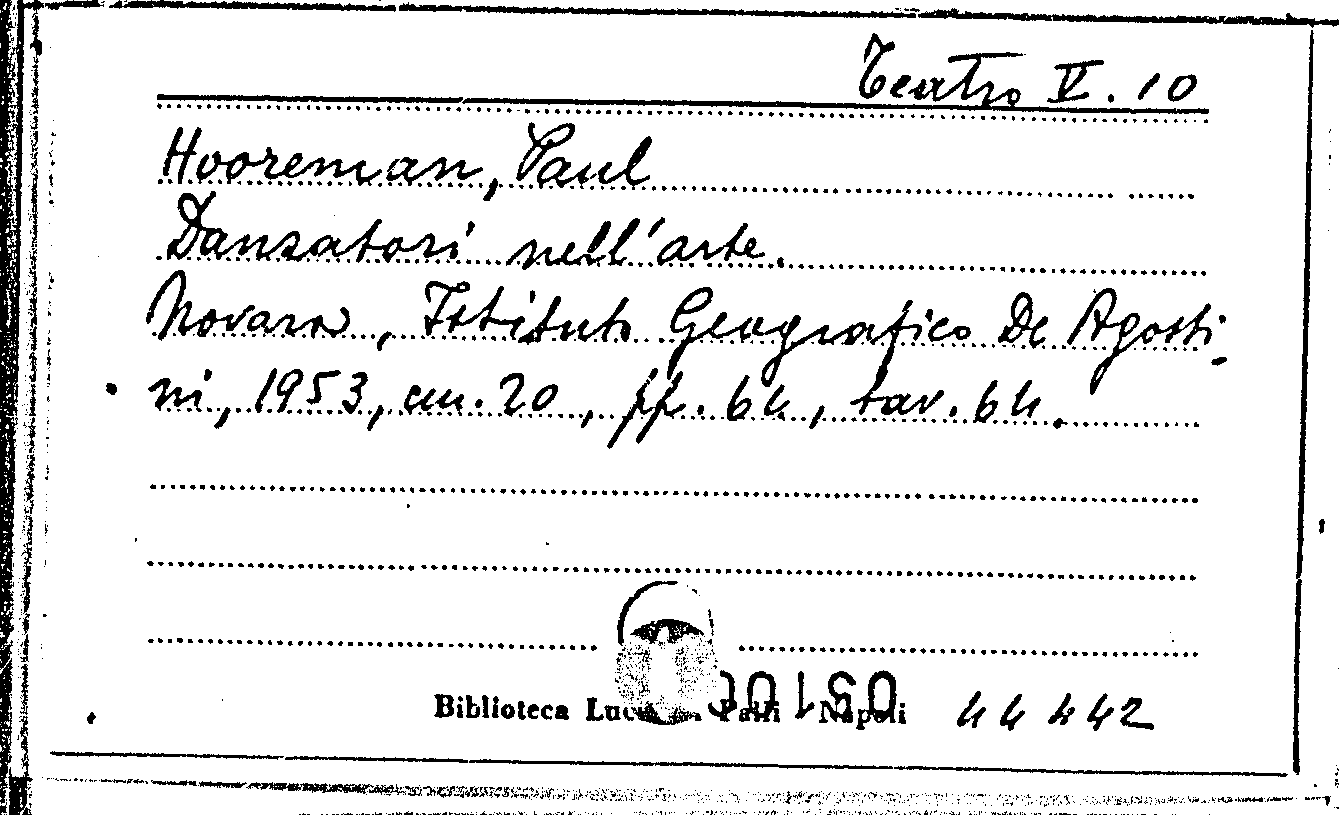 Teatro V. 10
Hooreman, Paul
Danzatori nell'arte.
Novara, Istituto Geografico De Agosti-
ni, 1953, cm. 20, pp. 64, tav. 64.
Biblioteca Napoli 44 442